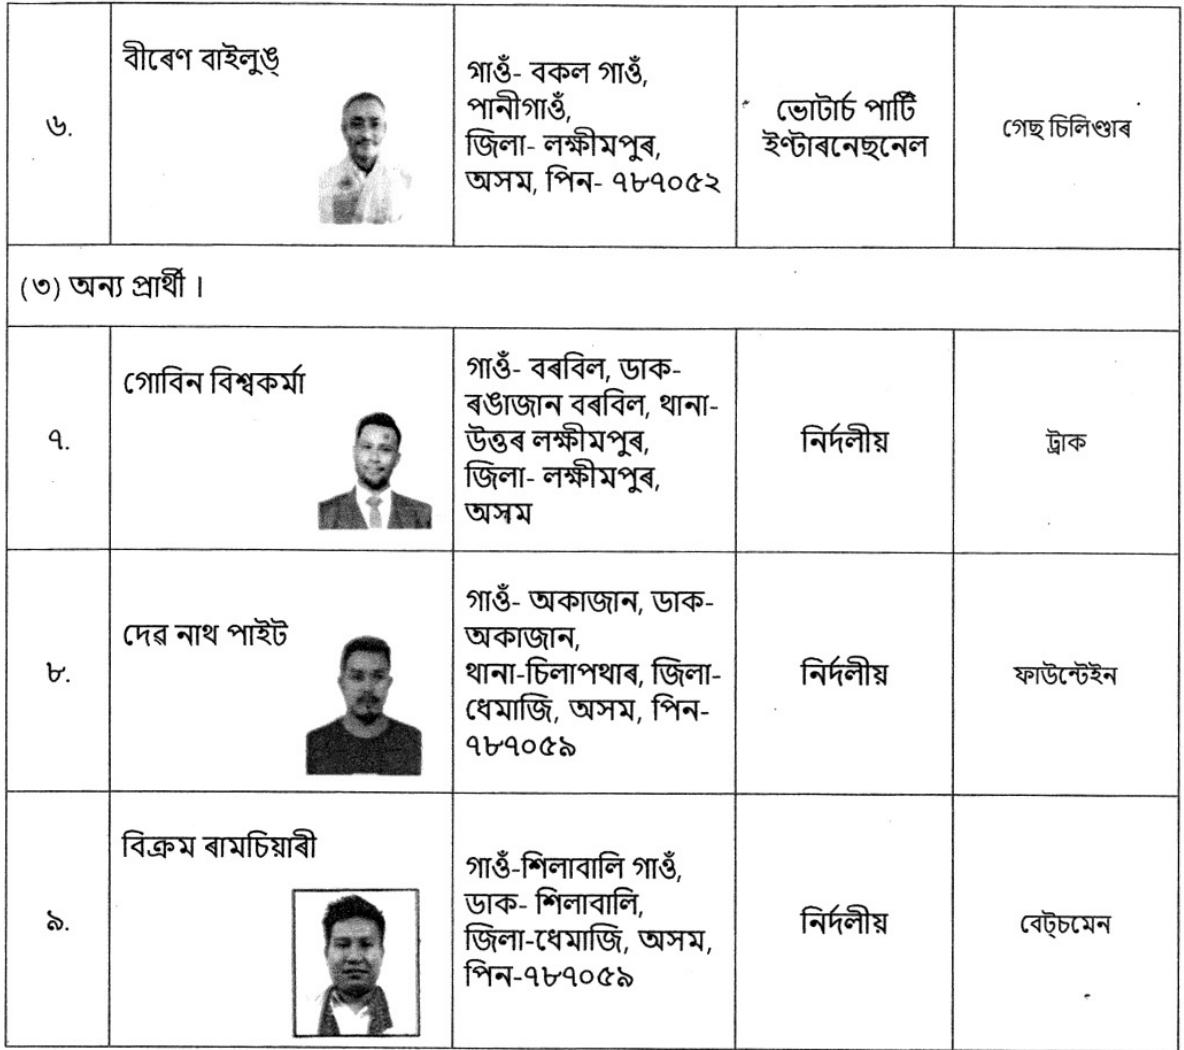 ৬.
বীৰেণ বাইলুঙ্
গাওঁ- বকল গাওঁ,
পানীগাওঁ,
জিলা- লক্ষীমপুৰ,
অসম, পিন- ৭৮৭০৫২
ভোটাৰ্চ পাৰ্টি
ইণ্টাৰনেছনেল
গেছ চিলিণ্ডাৰ
(৩) অন্য প্ৰাৰ্থী ।
৭.
গোবিন বিশ্বকৰ্মা
গাওঁ- বৰবিল, ডাক-
ৰঙাজান বৰবিল, থানা-
উত্তৰ লক্ষীমপুৰ,
জিলা- লক্ষীমপুৰ,
অসম
নিৰ্দলীয়
ট্ৰাক
৮.
দেৱ নাথ পাইট
গাওঁ- অকাজান, ডাক-
অকাজান,
থানা-চিলাপথাৰ, জিলা-
ধেমাজি, অসম, পিন-
৭৮৭০৫৯
নিৰ্দলীয়
ফাউন্টেইন
৯.
বিক্ৰম ৰামচিয়াৰী
গাওঁ-শিলাবালি গাওঁ,
ডাক- শিলাবালি,
জিলা-ধেমাজি, অসম,
পিন-৭৮৭০৫৯
নিৰ্দলীয়
বেট্চমেন